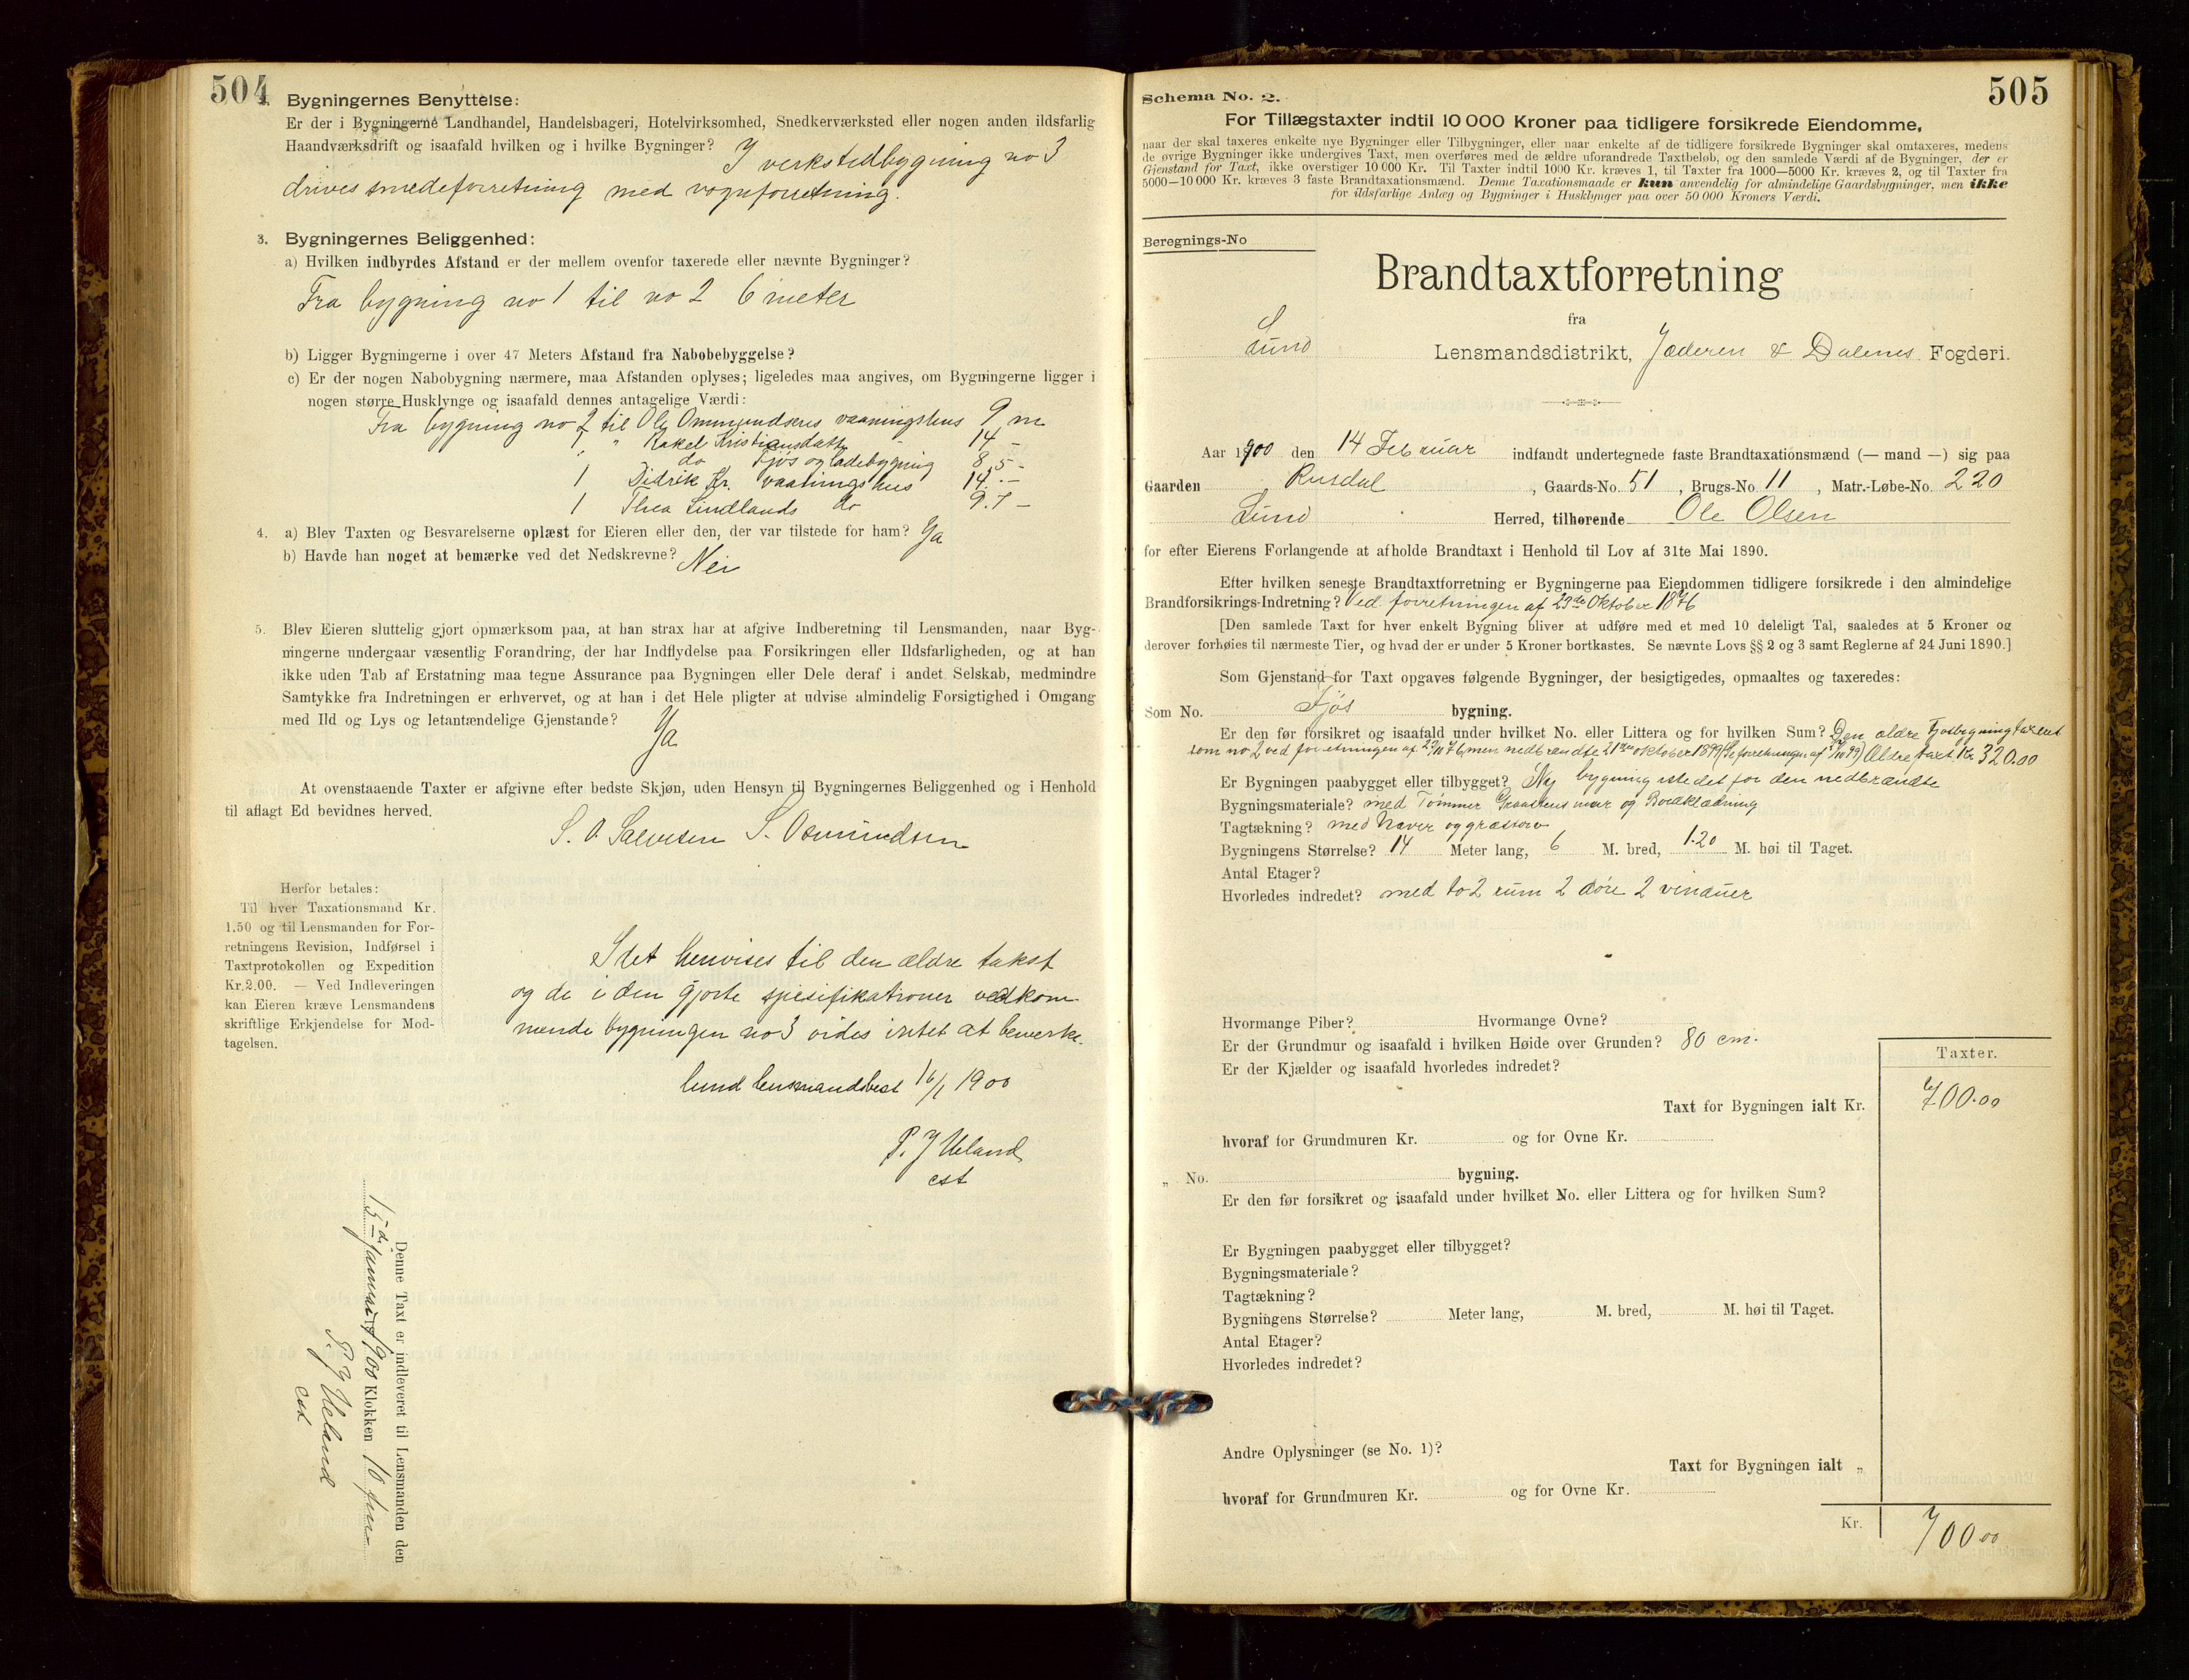 504
Bygningernes Benyttelse:
Er der i Bygningerne Landhandel, Handelsbageri, Hotelvirksomhed, Snedkerværksted eller nogen anden ildsfarlig
Haandværksdrift og isaafald hvilken og i hvilke Bygninger? I verkstedbygning no 3
drives smedeforretning med vognforretning.
3. Bygningernes Beliggenhed:
a) Hvilken indbyrdes Afstand er der mellem ovenfor taxerede eller nævnte Bygninger?
Fra bygning no 1 til no 2 6 meter
b) Ligger Bygningerne i over 47 Meters Afstand fra Nabobebyggelse?
c) Er der nogen Nabobygning nærmere, maa Afstanden oplyses; ligeledes maa angives, om Bygningerne ligger i
nogen større Husklynge og isaafald dennes antagelige Værdi:
Fra bygning no 2 til Ole Ommundsens vaaningshus 9 m
1 " Rakel Kristiansdatter 14 -
do Fjøs og ladebygning 8,5 -
1 Didrik Kr. vaaningshus 14. -
1 Thea Lindlands do 9.7 -
4. a) Blev Taxten og Besvarelserne oplæst for Eieren eller den, der var tilstede for ham? Ja
b) Havde han noget at bemærke ved det Nedskrevne? Nei
5. Blev Eieren sluttelig gjort opmærksom paa, at han strax har at afgive Indberetning til Lensmanden, naar Byg-
ningerne undergaar væsentlig Forandring, der har Indflydelse paa Forsikringen eller Ildsfarligheden, og at han
ikke uden Tab af Erstatning maa tegne Assurance paa Bygningen eller Dele deraf i andet Selskab, medmindre
Samtykke fra Indretningen er erhvervet, og at han i det Hele pligter at udvise almindelig Forsigtighed i Omgang
med Ild og Lys og letantændelige Gjenstande? Ja
At ovenstaaende Taxter er afgivne efter bedste Skjøn, uden Hensyn til Bygningernes Beliggenhed og i Henhold
til aflagt Ed bevidnes herved.
S. O. Salvesen S. Osmundsen
Herfor betales:
Til hver Taxationsmand Kr.
1.50 og til Lensmanden for For-
retningens Revision, Indførsel i
Taxtprotokollen og Expedition
Kr. 2.00. — Ved Indleveringen
kan Eieren kræve Lensmandens
skriftlige Erkjendelse for Mod-
tagelsen.
Idet henvises til den ældre takst
og de i den gjorte spesifikationer vedkom-
mende bygningen no 3 vides intet at bemerke.
Lund lensmandsbest 16/1 1900
P. J Ueland
cst
Denne Taxt er indleveret til Lensmanden den
15de Januar 1900 Klokken 10 fm
P. J Ueland
cst
505
Schema No. 2.
For Tillægstaxter indtil 10 000 Kroner paa tidligere forsikrede Eiendomme,
naar der skal taxeres enkelte nye Bygninger eller Tilbygninger, eller naar enkelte af de tidligere forsikrede Bygninger skal omtaxeres, medens
de øvrige Bygninger ikke undergives Taxt, men overføres med de ældre uforandrede Taxtbeløb, og den samlede Værdi af de Bygninger, der er
Gjenstand for Taxt, ikke overstiger 10 000 Kr. Til Taxter indtil 1000 Kr. kræves 1, til Taxter fra 1000—5000 Kr. kræves 2, og til Taxter fra
5000—10 000 Kr. kræves 3 faste Brandtaxationsmænd. Denne Taxationsmaade er kun anvendelig for almindelige Gaardsbygninger, men ikke
for ildsfarlige Anlæg og Bygninger i Husklynger paa over 50 000 Kroners Værdi.
Beregnings-No
Brandtaxtforretning
fra
Lund Lensmandsdistrikt, Jæderen & Dalenes Fogderi.
Aar 1900 den 14 Februar indfandt undertegnede faste Brandtaxationsmænd (— mand —) sig paa
Gaarden Rusdal, Gaards-No. 51, Brugs-No. 11, Matr.-Løbe-No. 220
Lund Herred, tilhørende Ole Olsen
for efter Eierens Forlangende at afholde Brandtaxt i Henhold til Lov af 31te Mai 1890.
Efter hvilken seneste Brandtaxtforretning er Bygningerne paa Eiendommen tidligere forsikrede i den almindelige
Brandforsikrings-Indretning? Ved forretningen af 23de Oktober 1876
[Den samlede Taxt for hver enkelt Bygning bliver at udføre med et med 10 deleligt Tal, saaledes at 5 Kroner og
derover forhøies til nærmeste Tier, og hvad der er under 5 Kroner bortkastes. Se nævnte Lovs §§ 2 og 3 samt Reglerne af 24 Juni 1890.]
Som Gjenstand for Taxt opgaves følgende Bygninger, der besigtigedes, opmaaltes og taxeredes:
Som No. Fjøs bygning.
Er den før forsikret og isaafald under hvilket No. eller Littera og for hvilken Sum? Den ældre Fjøsbygning taxeret
som no 2 ved forretningen af 23/10 76, men nedbrændte 21de oktober 1899 (Se forretningen af /10 99) Ældre taxt Kr 320.00
Er Bygningen paabygget eller tilbygget? Ny bygning istedet for den nedbrændte
Bygningsmateriale? med Tømmer Graastens mur og Bordklædning
Tagtækning? med Næver og græstorv
Bygningens Størrelse? 14 Meter lang, 6 M. bred, 1.20 M. høi til Taget.
Antal Etager?
Hvorledes indredet? med to 2 rum 2 døre 2 vinduer
Hvormange Piber? Hvormange Ovne?
Er der Grundmur og isaafald i hvilken Høide over Grunden? 80 cm.
Er der Kjælder og isaafald hvorledes indredet?
Taxter.
Taxt for Bygningen ialt Kr. 700.00
hvoraf for Grundmuren Kr. og for Ovne Kr.
„ No. bygning.
Er den før forsikret og isaafald under hvilket No. eller Littera og for hvilken Sum?
Er Bygningen paabygget eller tilbygget?
Bygningsmateriale?
Tagtækning?
Bygningens Størrelse? Meter lang, M. bred, M. høi til Taget.
Antal Etager?
Hvorledes indredet?
Andre Oplysninger (se No. 1)?
Taxt for Bygningen ialt „
hvoraf for Grundmuren Kr. og for Ovne Kr.
Kr. 700.00